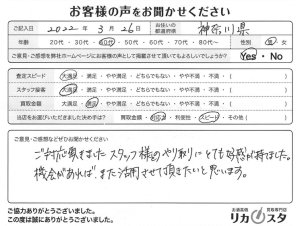 お客様の声をお聞かせください
ご記入日 2022年 3月 26日 お住いの都道府県 神奈川県
年齢 20代・30代・40代・50代・60代・70代・80代〜 性別 男・女
ご意見・ご感想を弊社ホームページにお客様の声として掲載させて頂いてもよろしいでしょうか? Yes・No
査定スピード 大満足・満足・やや満足・どちらでもない・やや不満・不満 ( )
スタッフ接客 大満足・満足・やや満足・どちらでもない・やや不満・不満 ( )
買取金額 大満足・満足・やや満足・どちらでもない・やや不満・不満 ( )
当店をお選びいただきました決め手は? 買取金額・対応・利便性・スピード・その他( )
ご意見・ご感想などがございましたらお聞かせください。
ご対応頂きました スタッフ様のやり取りにとても好感が持てました。
機会があれば、また活用させて頂きたいと思います。
ご協力ありがとうございました。
この度は誠にありがとうございました。
お酒高価買取専門店
リカスタ